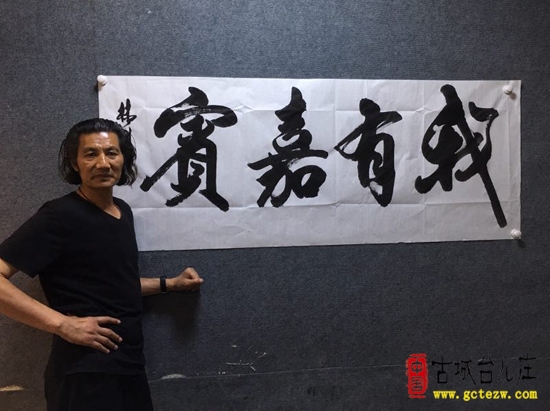 我有嘉賓
林
中国
古城台儿庄
www.gctezw.com